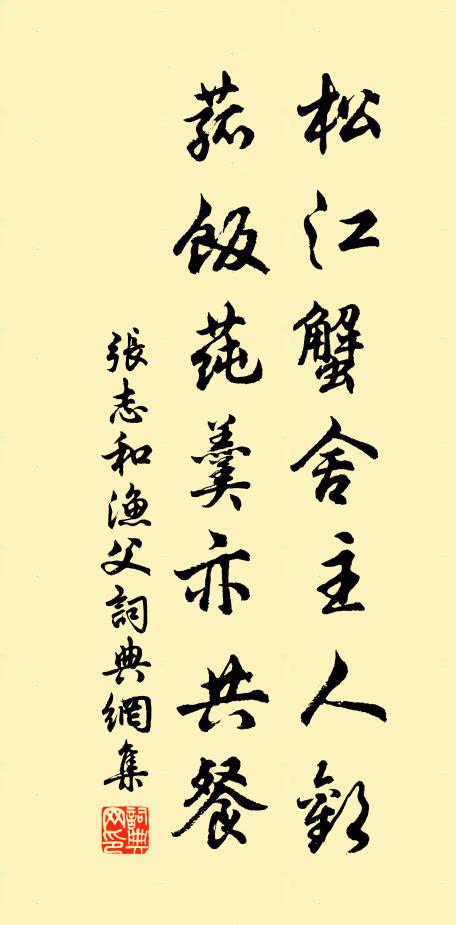 松江蟹舍主人歡
菰飯蒓羹亦共餐
張志和漁父詞典網集
詞典网印